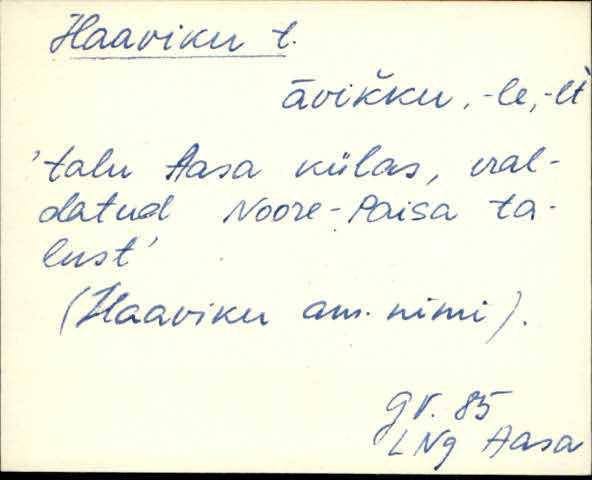 Haaviku t.
āvikku, -le, -lt
'talu Aasa külas, eral-
datud Noore-Paisa ta-
lust'
(Haaviku am. nimi).
gr. 85
LNg Aasa